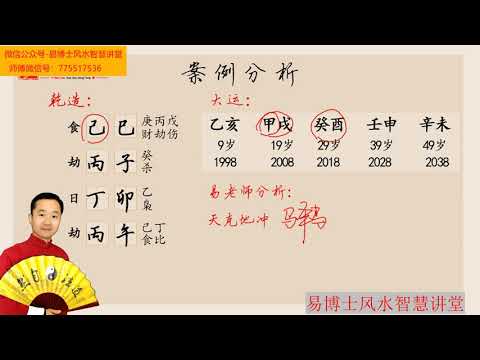 微信公众号-易博士风水智慧讲堂
师傅微信号：775517536
案例分析
乾造：
食 己 巳 庚丙戊 财劫伤
劫 丙 子 癸 杀
日 丁 卯 乙 枭
劫 丙 午 己丁 食比
大运：
乙亥 甲戌 癸酉 壬申 辛未
9岁 19岁 29岁 39岁 49岁
1998 2008 2018 2028 2038
易老师分析：
天克地冲
易博士风水智慧讲堂